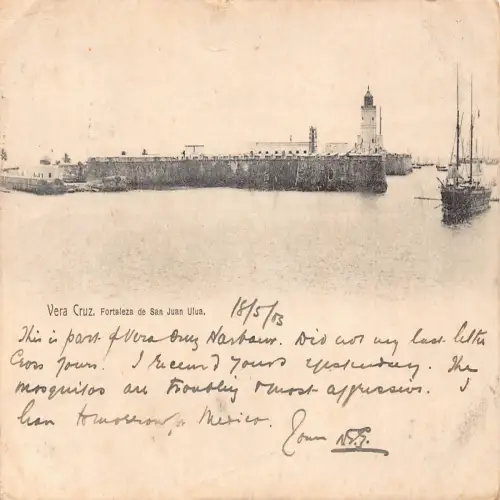 Vera Cruz. Fortaleza de San Juan Ulua.
18/5/03
This is part of Vera Cruz Harbour. Did not my last letter
Cross yours. I received yours yesterday. The
mosquitos are troubling & most aggressive. I
leave tomorrow for Mexico.
Yours